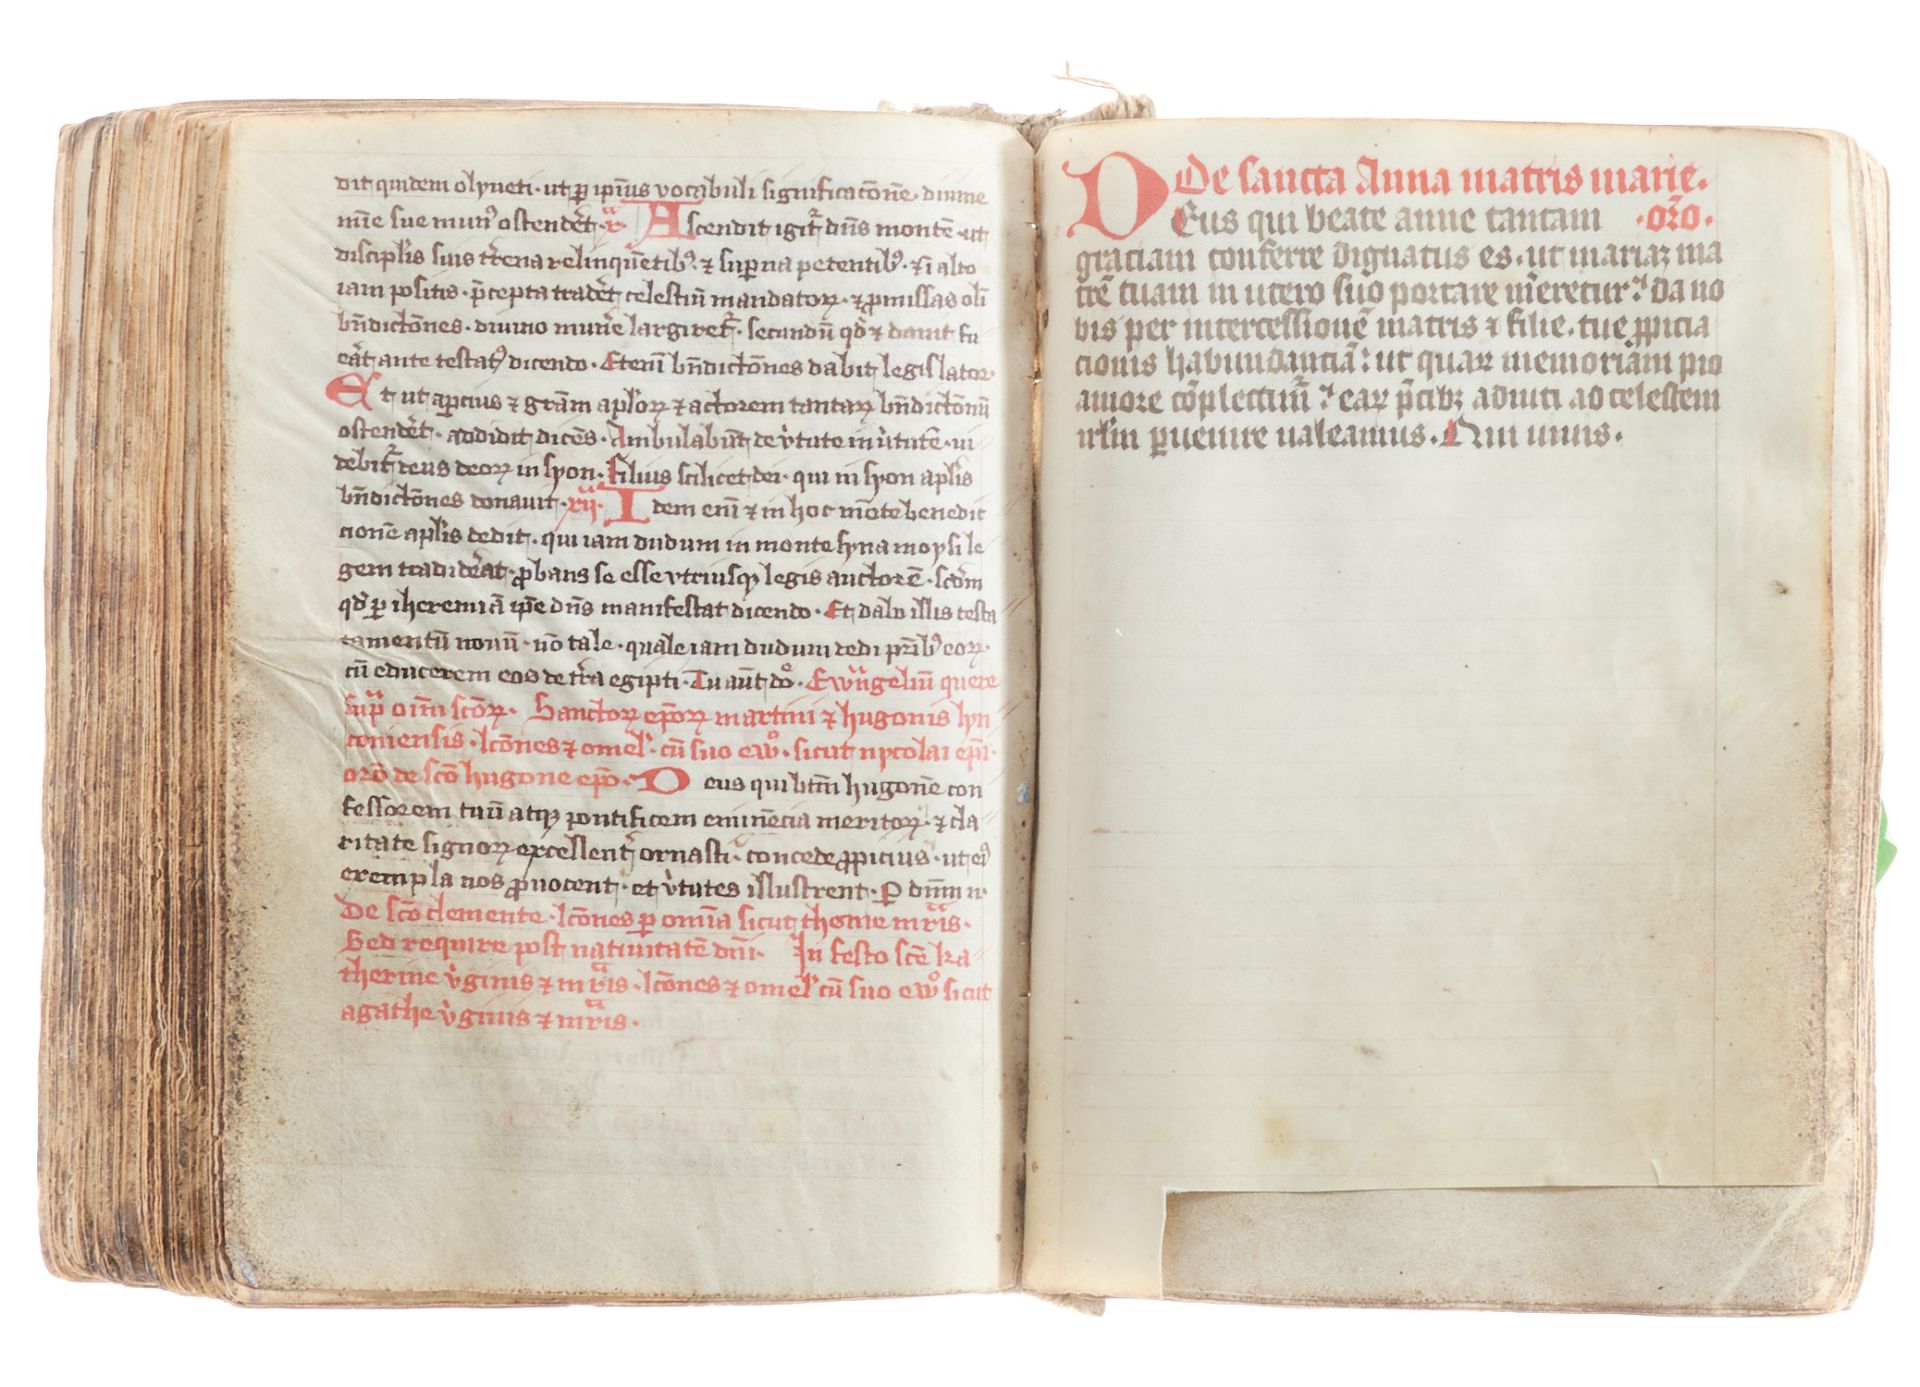 dit quidem olyueti · ut ꝑ ipīus vocabuli significacōnē · diuine
mīe sue mun᾽ ostendēt · x · Ascendit igit᷑ dn̄s montē · ut
disciplīs suis tr̄ena relinquētibꝫ · ⁊ suꝑna petentibꝫ · ⁊ ī alto
iam positis · p̄cepta tradēt celestiū mandatoꝝ · ⁊ ꝓmissas oli
bn̄dictōnes · diuino mun̄e largiret᷑ · secundū qd̄ ⁊ dauit fu
eāt ante testat᾽ dicendo · Eteni bn̄dictōnes dabit legislator ·
Et ut aꝑcius ⁊ grām aplōꝝ ⁊ actorem tantaꝝ bn̄dictōnū
ostendēt · addidit dicēs · Ambulabūt de v̄tute in v̄tutē · ui
debit᷑ deus deoꝝ in syon · filius scilicet dei · qui in syon aplīs
bn̄dictōnes donauit · xii · Idem eni ⁊ in hoc mōte benedic
cionē aplīs dedit · qui iam dudum in monte syna moysi le
gem tradidēat · ꝓbans se esse vtriusqꝫ legis auctorē · scd̄m
qd̄ ꝑ iheremiā ip̄e dn̄s manifestat dicendo · Et dabo illis testa
tamentū nouū · nō tale · quale iam dudum dedi pr̄ibꝫ eoꝝ ·
cū educerem eos de tr̄a egipti · Tu aūt dō · Ewāgeliū quere
supᵃ oim̄ scōꝝ · Sanctoꝝ ep̄oꝝ martini ⁊ hugonis lyn
coniensis · lcōnes ⁊ omel᾽ · cū suo ewº · sicut nycolai ep̄i ·
orō de scō hugone ep̄o · Deus qui btm̄ hugonē con
fessorem tuū atqꝫ pontificem eminēcia meritoꝝ · ⁊ cla
ritate signoꝝ excellent᾽ ornasti · concede ꝓpicius · ut ei᾽
exempla nos ꝓuocent · et v̄tutes illustrent · P dn̄m n·
De scō clemente · lcōnes ꝑ omīa sicut thome mr̄is ·
Sed require post natiuitatē dn̄i · In festo scē ka
therine v̄ginis ⁊ mr̄is · lcōnes ⁊ omel᾽ cū suo ewº sicut
agathe v̄ginis ⁊ mr̄is ·
De sancta Anna matris marie ·
Deus qui beate anne tantam · orō ·
graciam conferre dignatus es · ut mariaꝫ ma
trē tuam in utero suo portare m̄eretur · da no
bis per intercessionē matris ⁊ filie · tue ꝓpicia
cionis habundanciā · ut quaꝝ memoriam pio
amore cōplectim᾽ · eaꝝ p̄cibꝫ adiuti ad celestem
irl̄m ꝑuenire ualeamus · Qui uiuis ·